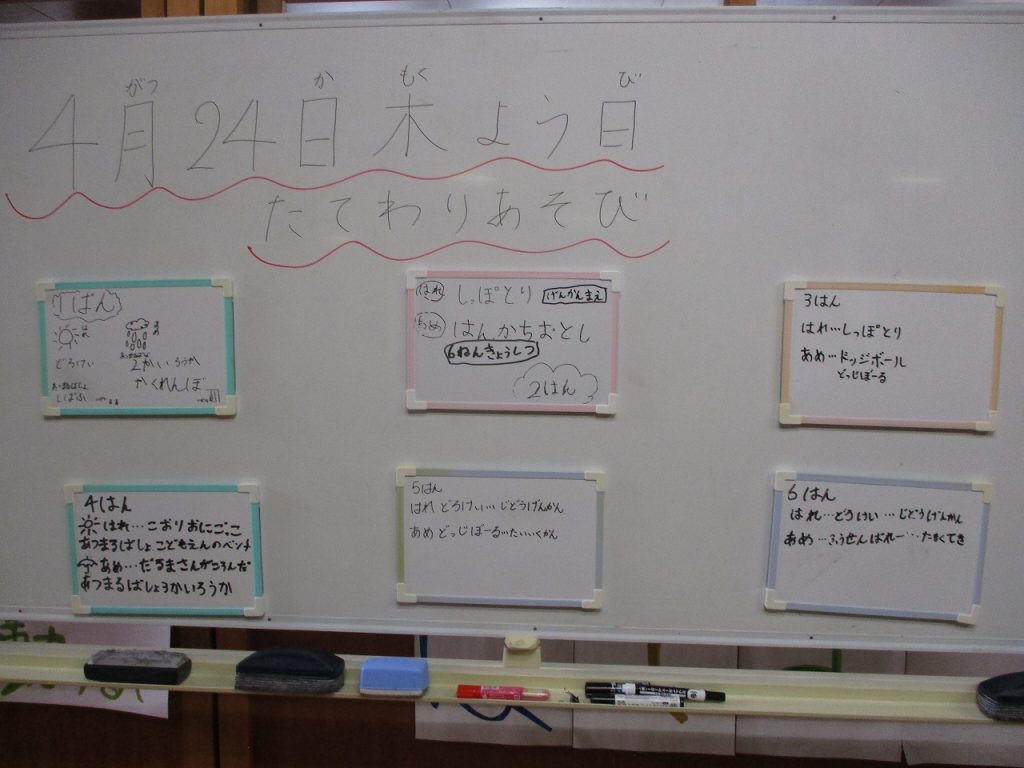 4月24日木よう日
がつ か もく び
たてわりあそび
1ぱん
はれ
どろけい
しばふ
2かいろうか
かくれんぼ
はれ しっぽとり げんかんまえ
あめ はんかちおとし
6ねんきょうしつ
2はん
3はん
はれ…しっぽとり
あめ…ドッジボール
どっじぼーる
4はん
はれ…こおりおにごっこ
あつまるばしょこどもえんのベンチ
あめ…だるまさんがころんだ
あつまるばしょ3かいろうか
5はん
はれ どろけい…じどうげんかん
あめ どっじぼーる…たいいくかん
6はん
はれ…どろけい…じどうげんかん
あめ…ふうせんばれー…たもくてき